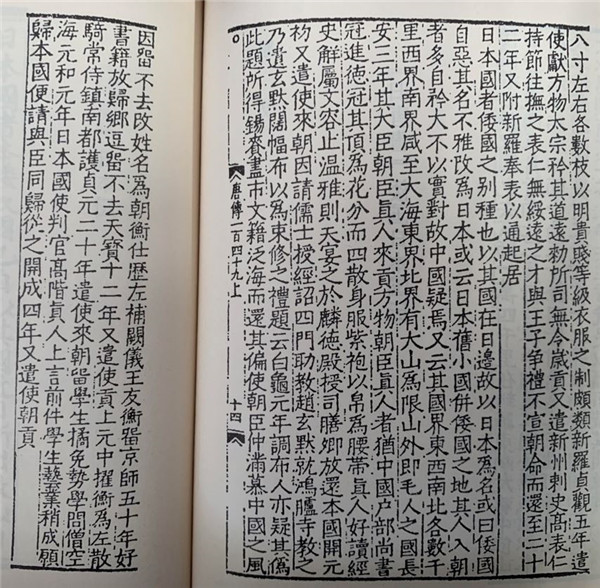 八寸左右各數枝以明貴賤等級衣服之制頗類新羅貞觀五年遣
使獻方物太宗矜其道遠勑所司無令歲貢又遣新州刺史髙表仁
持節往撫之表仁無綏遠之才與王子爭禮不宣朝命而還至二十
二年又附新羅奉表以通起居
日本國者倭國之別種也以其國在日邊故以日本爲名或曰倭國
自惡其名不雅改爲日本或云日本舊小國併倭國之地其人入朝
者多自矜大不以實對故中國疑焉又云其國界東西南北各數千
里西界南界咸至大海東界北界有大山爲限山外即毛人之國長
安三年其大臣朝臣眞人來貢方物朝臣眞人者猶中國户部尚書
冠進德冠其頂爲花分而四散身服紫袍以帛爲腰帶眞人好讀經
史解屬文容止温雅則天宴之於麟德殿授司膳卿放還本國開元
初又遣使來朝因請儒士授經詔四門助教趙玄默就鴻臚寺教之
乃遺玄默闊幅布以爲束修之禮題云白龜元年調布人亦疑其偽
此題所得錫賚盡市文籍泛海而還其偏使朝臣仲滿慕中國之風
唐傳一百四十九上
十四
因留不去改姓名爲朝衡仕歷左補闕儀王友衡留京師五十年好
書籍放歸鄉逗留不去天寶十二年又遣使貢上元中擢衡爲左散
騎常侍鎮南都護貞元二十年遣使來朝留學生橘免勢學問僧空
海元和元年日本國使判官髙階眞人上言前件學生藝業稍成願
歸本國便請與臣同歸從之開成四年又遣使朝貢